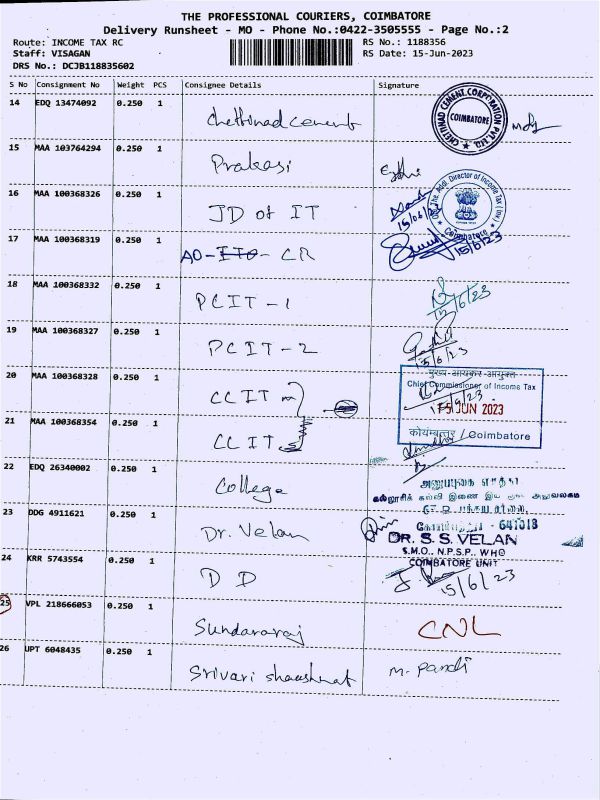 THE PROFESSIONAL COURIERS, COIMBATORE
Delivery Runsheet - MO - Phone No.:0422-3505555 - Page No.:2
Route: INCOME TAX RC
RS No.: 1188356
Staff: VISAGAN
RS Date: 15-Jun-2023
DRS No.: DCJB118835602
S No Consignment No Weight PCS Consignee Details Signature
14 EDQ 13474092 0.250 1 Chettinad cement
CHETTINAD CEMENT CORPORATION PVT. LTD.
COIMBATORE
15 MAA 103764294 0.250 1 Prakasi
16 MAA 100368326 0.250 1 JD of IT
The Addl. Director of Income Tax (Inv)
Coimbatore
15/06/23
17 MAA 100368319 0.250 1 AO - ITO - CR
15/6/23
18 MAA 100368332 0.250 1 PCIT - 1
15/6/23
19 MAA 100368327 0.250 1 PCIT - 2
15/6/23
20 MAA 100368328 0.250 1 CCIT
मुख्य आयकर आयुक्त
Chief Commissioner of Income Tax
15 JUN 2023
कोयम्बत्तूर / Coimbatore
21 MAA 100368354 0.250 1 CCIT
22 EDQ 26340002 0.250 1 College
கல்லூரிக் கல்வி இணை இயக்குநர் அலுவலகம்
641018
23 DDG 4911621 0.250 1 Dr. Velan
DR. S. S. VELAN
S.M.O., N.P.S.P., WHO
COIMBATORE UNIT
24 KRR 5743554 0.250 1 D D
15/6/23
25 VPL 218666053 0.250 1 Sundararaj CNL
26 UPT 6048435 0.250 1 Srivari shaashnat M. Pandi